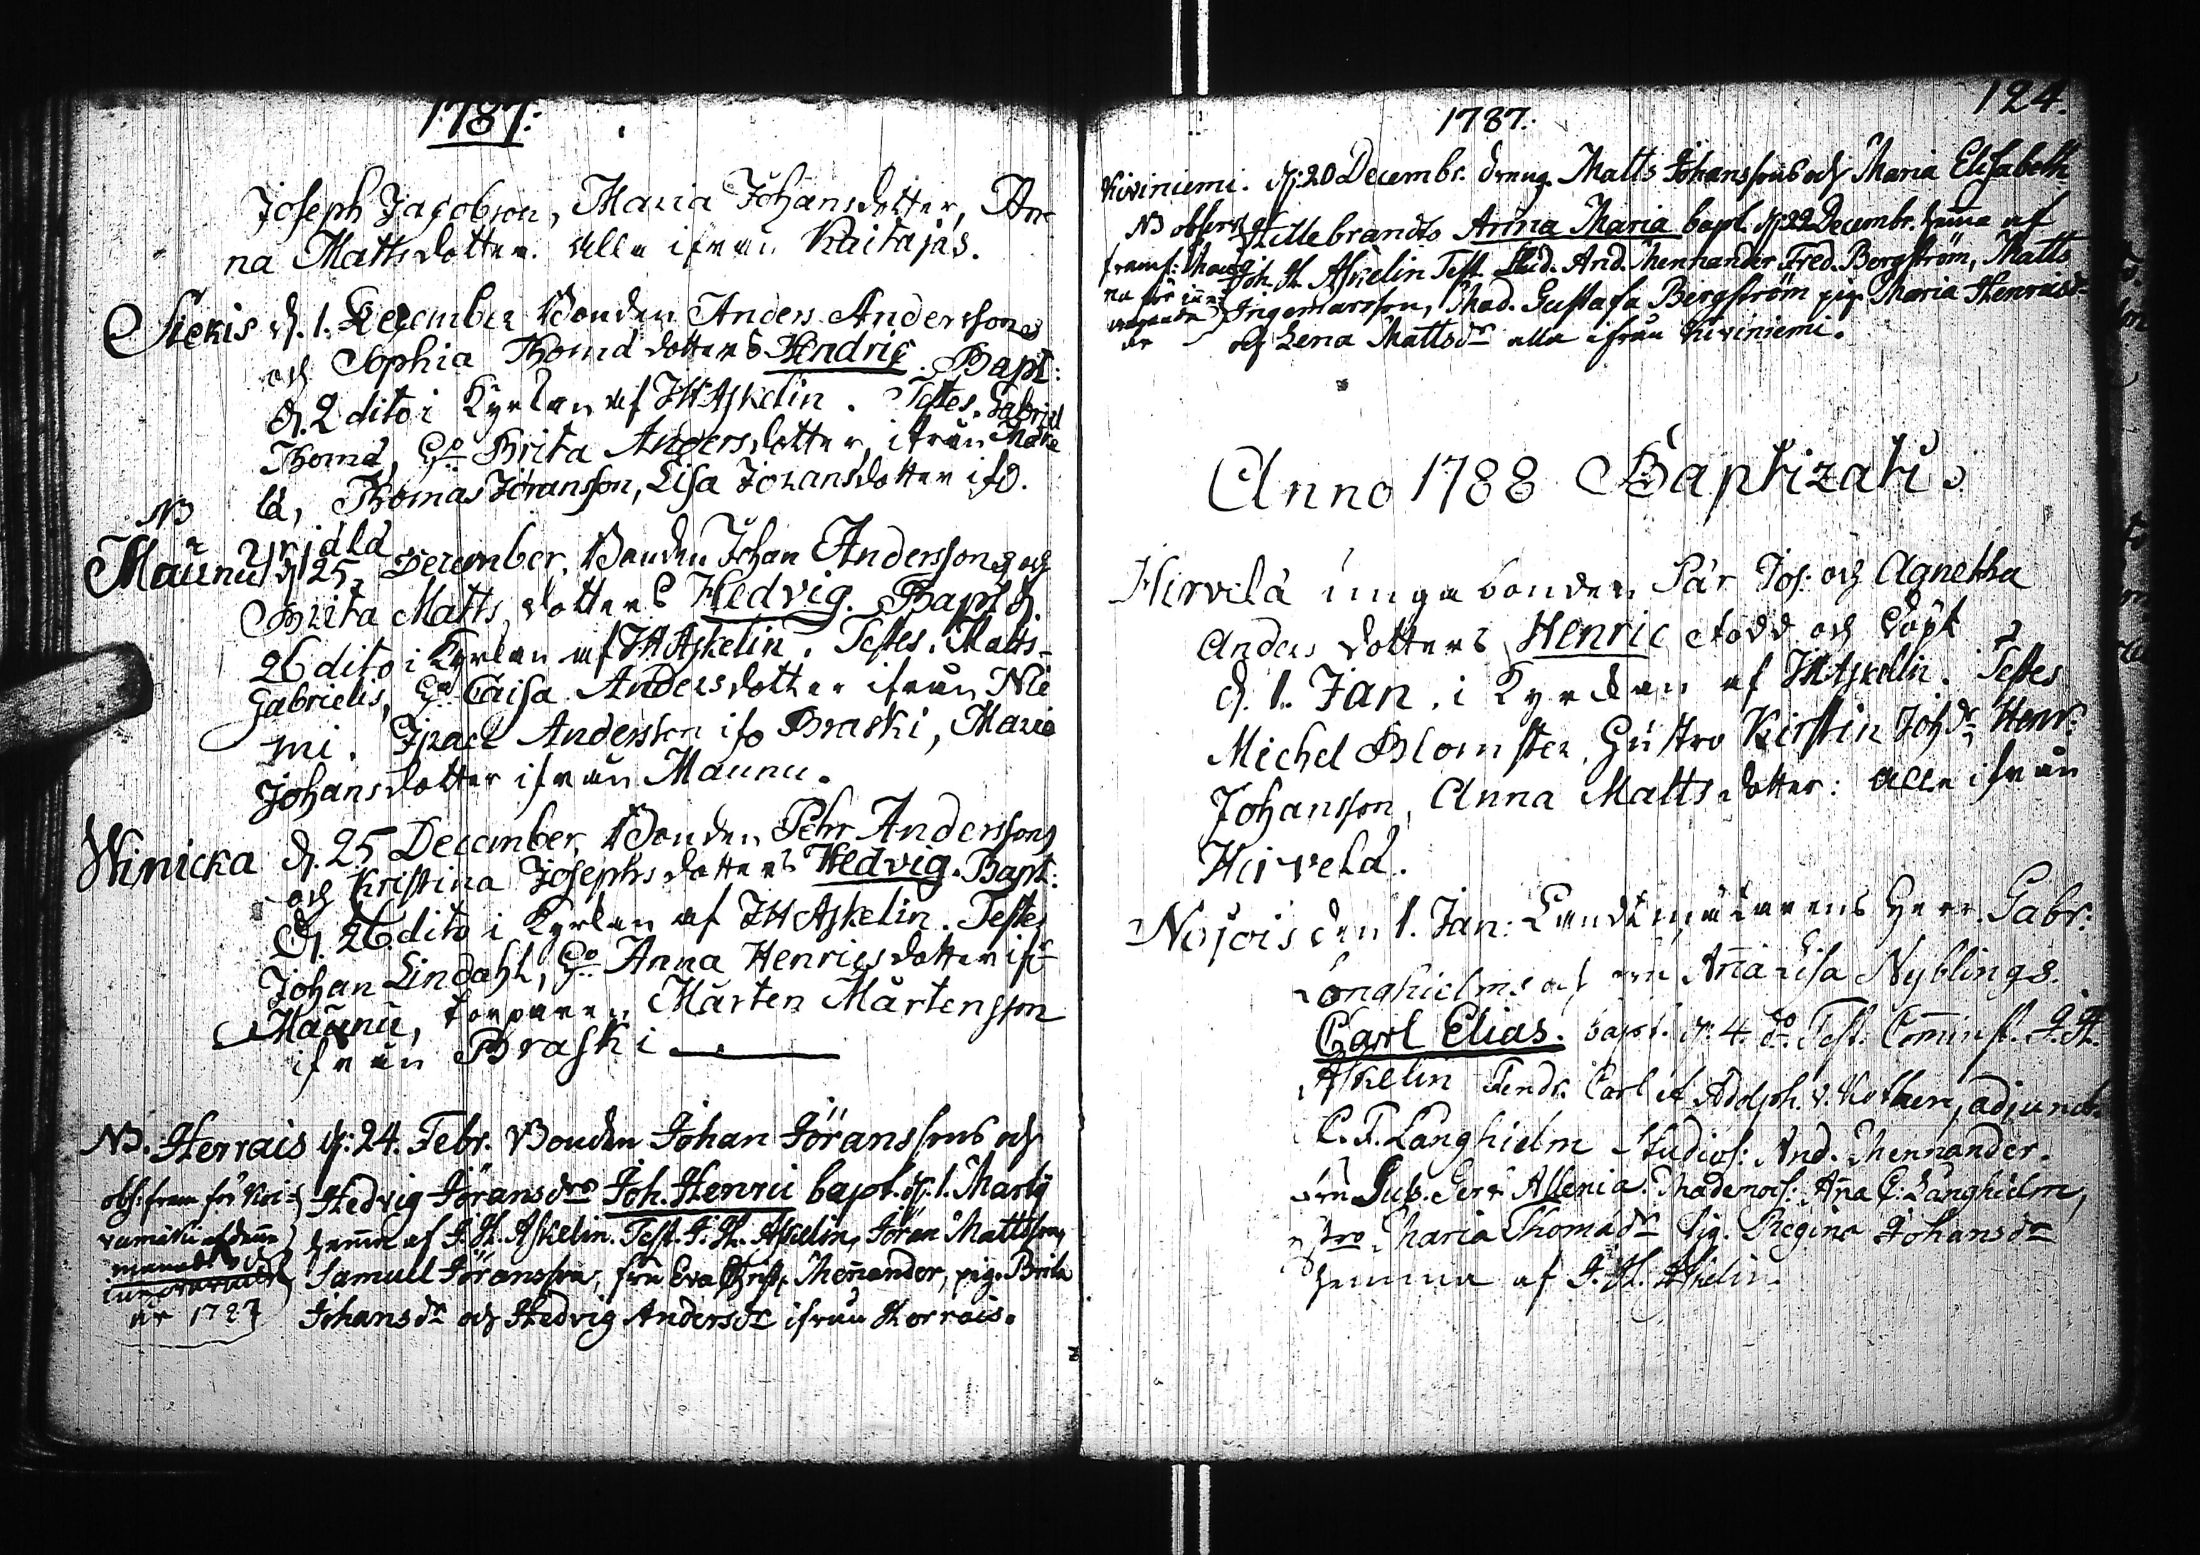 1787:
Joseph Jacobson, Maria Johansdotter, An-
na Mattsdotter. Alla ifrån Raitajås.
Stekis d. 1. December Bonden Anders Anderssons
och Sophia Thomædotters Hendric. Bapt:
d. 2 dito i Kyrkan af JH Askelin. Testes. Gabriel
Thomæ, Hu Brita Andersdotter, ifrån
lä, Thomas Jöransson, Lisa Johansdotter ifr.
NB
Maunu d 25 December. Bonden Johan Anderssons och
Brita Matts dotters Hedvig. Bapt d.
26 dito i Kyrkan af JH Askelin. Testes. Matts
Gabrielis, Caisa Andersdotter ifrån Nie
mi. Isaac Andersson ifr Braski, Maria
Johansdotter ifrån Maunu.
Winicka d. 25 December, Bonden Pehr Anderssons
och Kristina Josephsdotters Hedvig. Bapt:
d. 26 dito i Kyrkan af JH Askelin. Testes
Johan Lindahl, Anna Henricsdotter ifr
Maunu, torparen Mårten Mårtensson
ifrån Braski
NB. Herrais d: 24. Febr. Bonden Johan Jöranssons och
obs: fram för Hedvig Jöransdrs Joh. Henric bapt. d: 1. Martij
hemma af J. H. Askelin. Test. J. H. Askelin, Jöran Mattsson,
månad Samuel Jöransson, fru Eva Christ. Mennander, pig. Brita
år 1787 Johansdr och Hedvig Andersdr ifrån Herrais.
124.
1787.
Kiviniemi. d: 20 Decembr. dreng. Matts Johanssons och Maria Elisabeth
NB observ Hillebrandts Anna Maria bapt. d: 22 Decembr. hemma af
Joh. H. Askelin Test. Stud. And. Mennander Fred. Bergström, Matts
Ingemarsson, Mad. Gustafa Bergström pig. Maria Henrics
år och Lena Mattsdr alla ifrån Kiviniemi.
Anno 1788 Baptizati
Hirvilä unga bonden Pär Jos: och Agnetha
Anders dotters Henric född och döpt
d. 1. Jan. i Kyrkan af JH Askelin. Testes
Michel Blomster, Hustro Kirstin Johdr Henr:
Johansson, Anna Mattsdotter: alla ifrån
Hirvelä.
Nojois den 1. Jan: Landtmätarens Herr. Gabr:
Långhielms och fru Anna Lisa Nyblings.
Carl Elias. bapt. d: 4. do. Test. Comminist. J. H.
Askelin Fendr. Carl et Adolph. v. Kothen, adjunct.
C. F. Långhielm Studios: And. Mennander.
fru Allenia. Mademois: Anna C: Långhielm,
Maria Thomædr Pig. Regina Johansdr
hemma af J. H. Askelin.